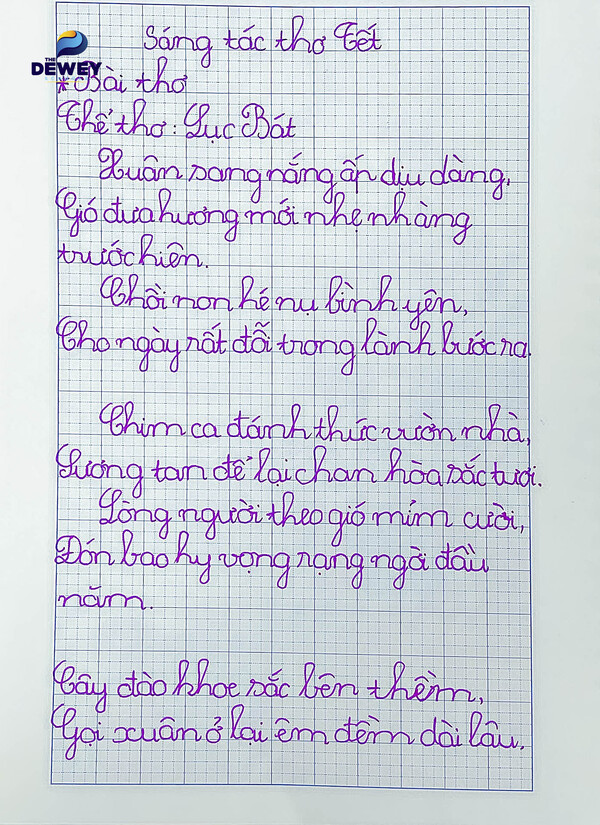 THE
DEWEY
Sáng tác thơ Tết
* Bài thơ
Thể thơ: Lục Bát
Xuân sang nắng ấp dịu dàng,
Gió đưa hương mới nhẹ nhàng
trước hiên.
Chồi non hé nụ bình yên,
Cho ngày rất đỗi trong lành bước ra.
Chim ca đánh thức vườn nhà,
Sương tan để lại chan hòa sắc tươi.
Lòng người theo gió mỉm cười,
Đón bao hy vọng rạng ngời đầu
năm.
Cây đào khoe sắc bên thềm,
Gọi xuân ở lại êm đềm dài lâu.